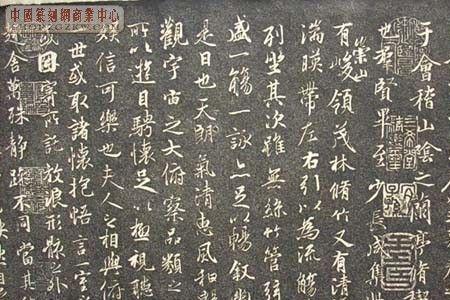 中國篆刻網商業中心
于會稽山陰之蘭亭脩稧
也羣賢畢至少長咸集
有崇山峻領茂林脩竹又有清
湍暎帶左右引以為流觴
列坐其次雖無絲竹管弦
盛一觴一詠亦足以暢敘幽
是日也天朗氣清惠風和暢
觀宇宙之大俯察品類之
所以遊目騁懷足以極視聽
娛信可樂也夫人之相與俯
一世或取諸懷抱悟言一室
因寄所託放浪形骸之外
舍萬殊靜躁不同當其